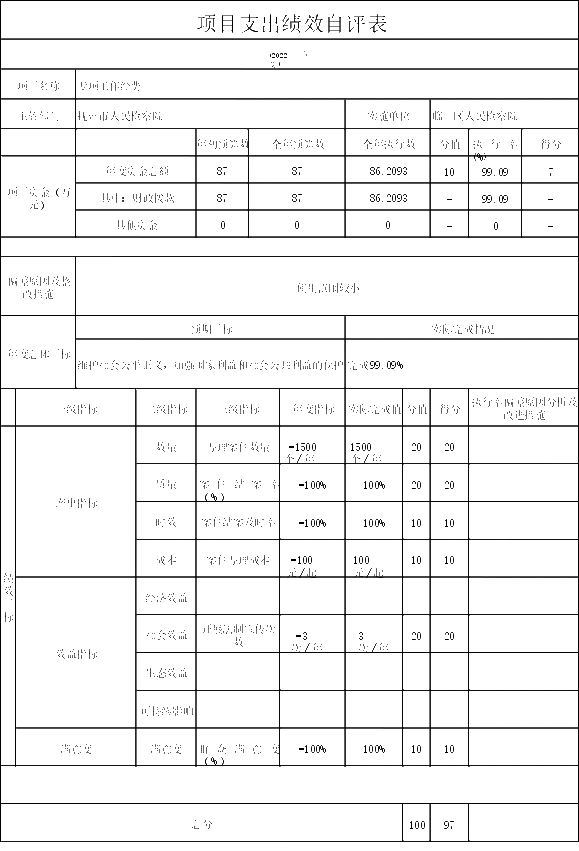 项目支出绩效自评表
项目名称 专项工作经费
抚州市人民检察院 实施单位 临川区人民检察院
年初预算数 全年预算数 全年执行数 分值 执行率 得分
(%)
项目资金（万
元）
年度资金总额 87 87 86.2093 10 99.09 7
其中：财政拨款 87 87 86.2093 － 99.09 －
其他资金 0 0 0 － 0 －
偏差原因及整
改措施
年度总体目标
预期目标 实际完成情况
维护社会公平正义，加强国家利益和社会公共利益的保护 完成99.09%
一级指标 二级指标 三级指标 年度指标 实际完成值 分值 得分 执行率偏差原因分析及
改进措施
绩
效
指
标
产出指标
数量 办理案件数量 =1500 1500 20 20
质量 案件结案率 =100% 100% 20 20
(%)
时效 案件结案及时率 =100% 100% 10 10
成本 案件办理成本 =100 100 10 10
元/起 元/起
效益指标
经济效益
社会效益 开展法制宣传次 =3 3 20 20
数
生态效益
可持续影响
满意度 满意度 =100% 100% 10 10
(%)
总分 100 97